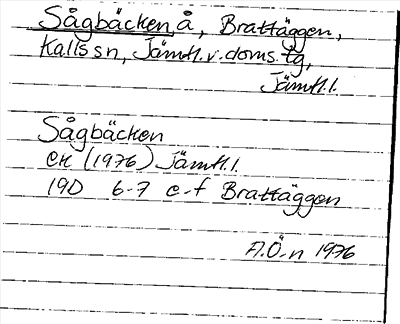 Sågbäcken, å, Brattäggen,
Kalls sn, Jämtl. v. doms. tg,
Jämtl. l.
Sågbäcken
EK (1976) Jämtl. l.
19D 6-7 e-f Brattäggen
A.Ö-n 1976